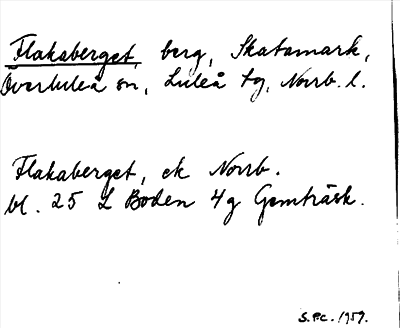 Flakaberget, berg, Skatamark,
Överluleå sn, Luleå tg, Norrb. l.
Flakaberget, ek Norrb.
bl. 25 L Boden 4g Gemträsk.
S.Pc. 1959.